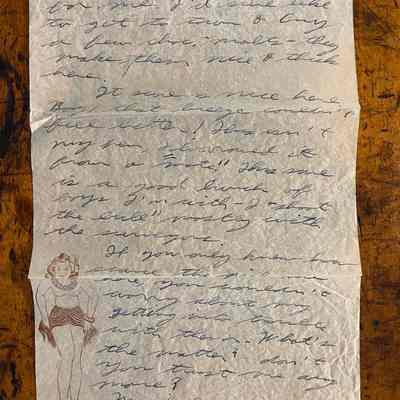 for me. I'd sure like
to get to town & buy
a few choc. "malts" - they
make them nice & thick
here.
It sure is nice here.
Boy, that breeze couldn't
feel better! This isn't
my pen, I borrowed it
from a "mate." This sure
is a good bunch of
boys I'm with - I "shoot
the bull" mostly with
the surveyors.
If you only knew how
scarce the
are, you wouldn't
worry about my
getting into trouble
with them. What's
the matter? don't
you trust me any
more?